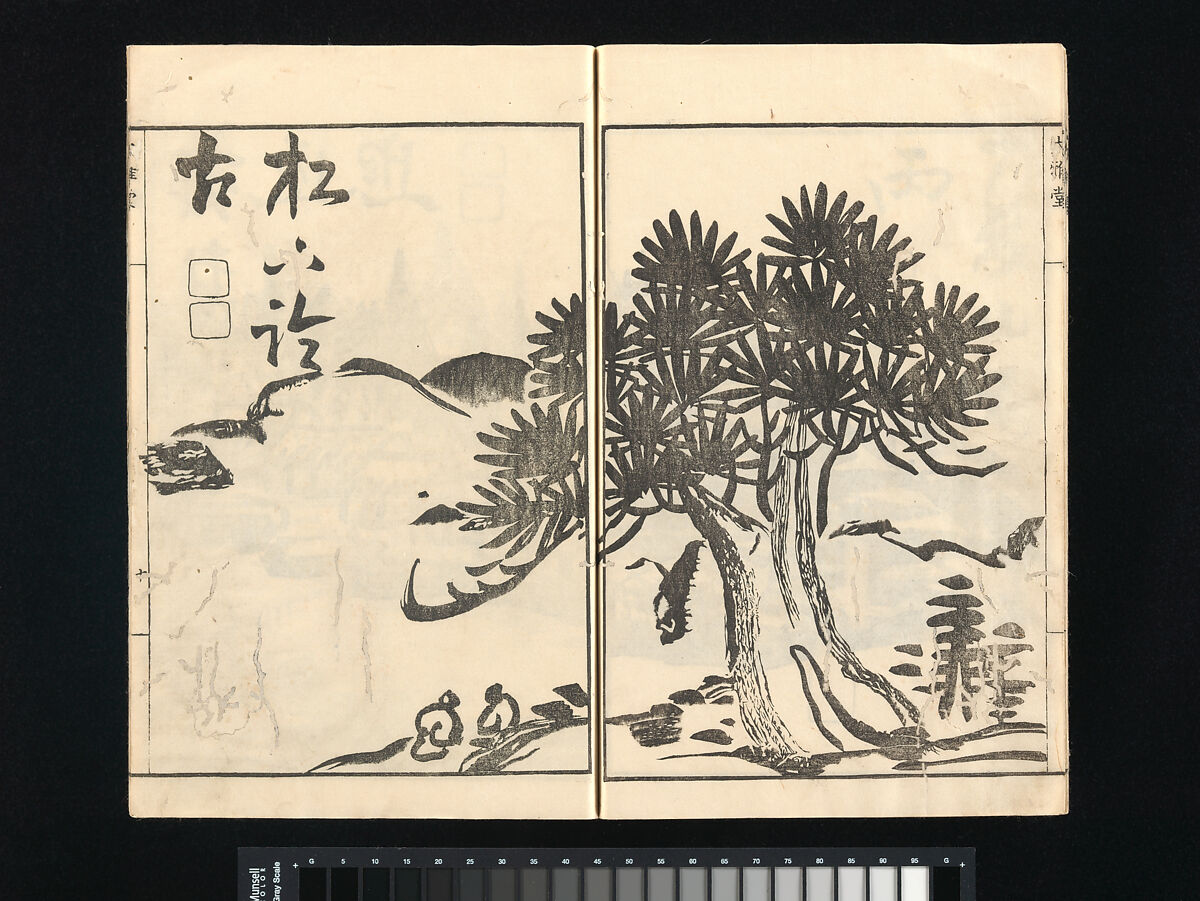 松下論
古
大雅堂
十
Munsell
COLOR
Gray Scale
G 5 10 15 20 25 30 35 40 45 50 55 60 65 70 75 80 85 90 95 G